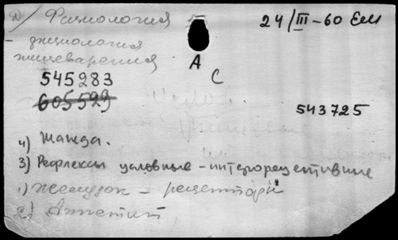 Физиология
24/III-60 Ем
физиология
пищеварения
А
С
545283
605599
543725
4) Жажда.
3) Рефлексы условные - интерорецептивные
1) Желудок - рецепторы
2) Аппетит